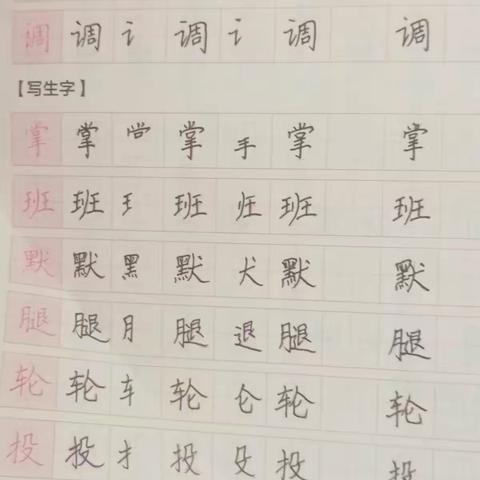 调 调 讠 调 讠 调 调
【写生字】
掌 掌 龸 掌 手 掌 掌
班 班 王 班 班 班
默 默 黑 默 犬 默 默
腿 腿 月 腿 退 腿 腿
轮 轮 车 轮 仑 轮 轮
投 投 扌 投 殳 投 投